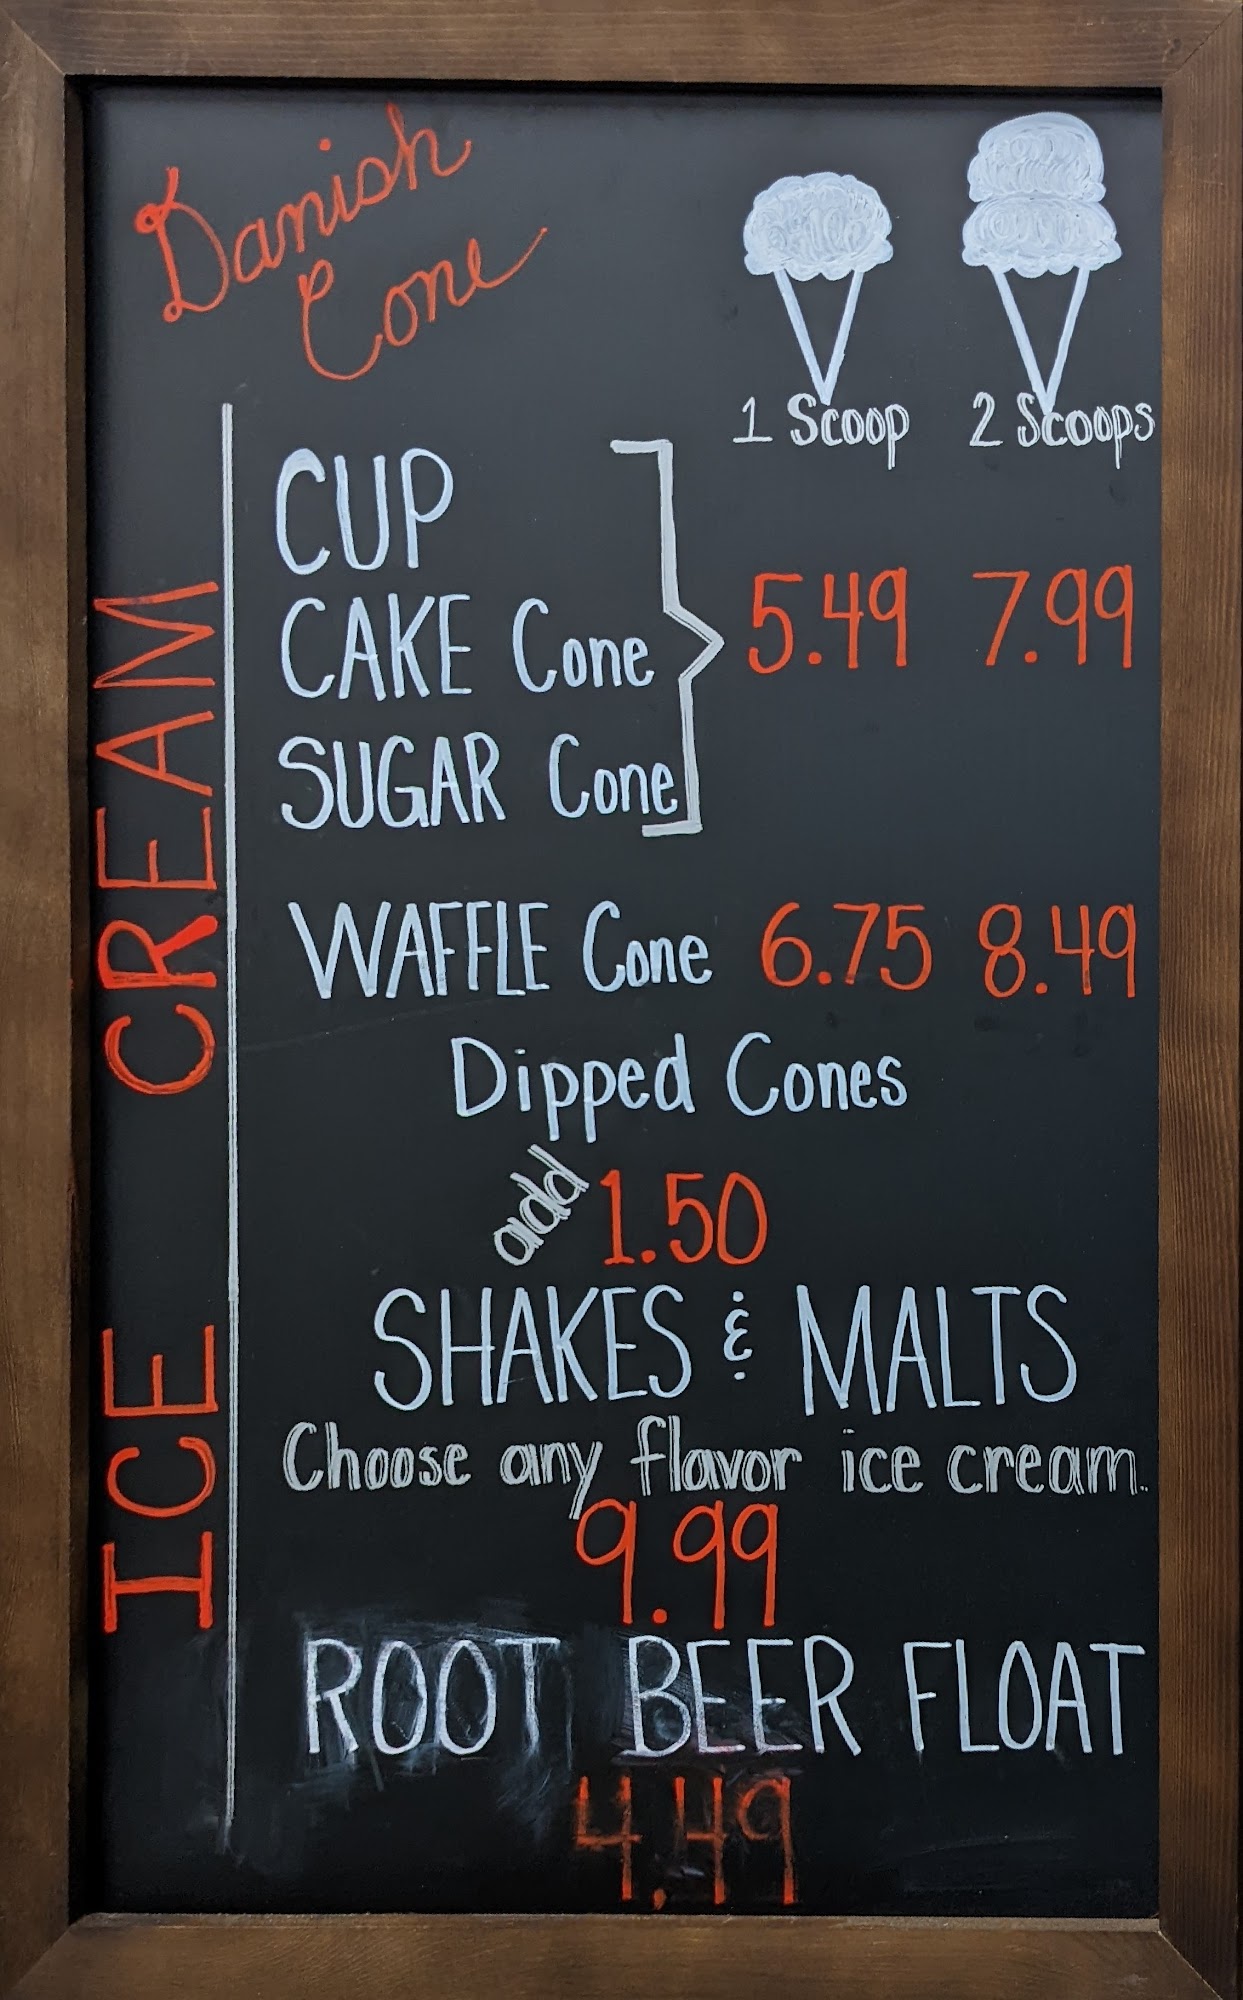 Danish
Cone
1 Scoop 2 Scoops
ICE CREAM
CUP
CAKE Cone 5.49 7.99
SUGAR Cone
WAFFLE Cone 6.75 8.49
Dipped Cones
add 1.50
SHAKES & MALTS
Choose any flavor ice cream.
9.99
ROOT BEER FLOAT
4.49